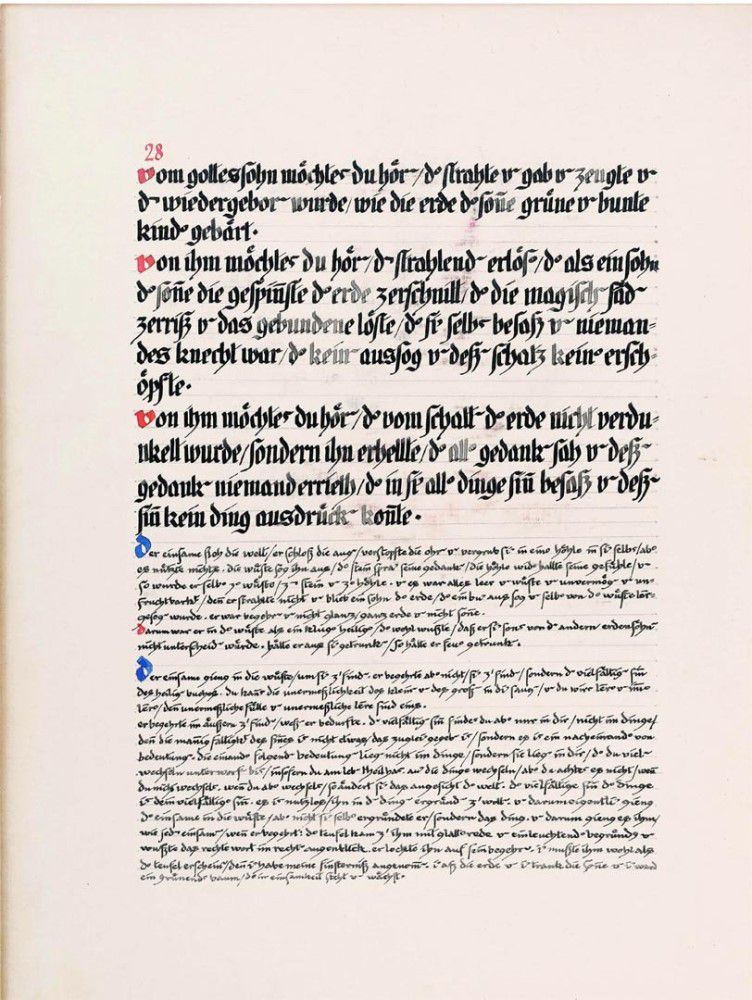 28
vom gottessohn möchtest du hör / d strahlte v gab v zeugte v
d wiedergebor wurde / wie die erde d soñe grüne v bunte
kind gebärt.
von ihm möchtest du hör / d strahlend erlös / d als ein sohn
d soñe die gespiñste d erde zerschnitt / d die magisch fäd
zerriß v das gebundene löste / d si selbs besaß v nieman=
des knecht war / d kein aussog v deß schatz keine ersch=
öpfte.
von ihm möchtest du hör / d vom schatt d erde nicht verdu=
nkelt wurde / sondern ihn erhellte / d all gedank sah v deß
gedank niemand errieth / d in si all dinge siñ besaß v deß
siñ kein ding ausdrück koñte.
der einsame floh die welt / er schloß die aug / verstopfte die ohr v vergrub si in eine höhle in si selbs / ab
es nützte nichts. die wüste sog ihn aus / d stein sprach seine gedank / die höhle widhallte seine gefühle / v
so wurde er selbs z wüste / z stein v z höhle. v es war alles leer v wüste v unvermög v un=
fruchtbarkt / deñ er strahlte nicht v blieb ein sohn d erde / d ein buch aussog v selbs von d wüste leer=
gesog wurde. er war begehr v nicht glanz / ganz erde v nicht soñe.
darum war er in d wüste als ein kluge heilige / d wohl wußte / daß er si sons von d andern erdensöhn
nicht unterscheid würde. hätte er aus si getrunk / so hätte er feu getrunk.
der einsame gieng in die wüste / um si z find. er begehrte ab nicht / si z find / sondern d vielfältig siñ
des heilig buches. du kañst die unermeßlichkeit des klein v des groß in di saug / v du wirs lere v im=
lere / deñ unermeßliche fülle v unermeßliche lere sind eins.
er begehrte im äußern z find / weß er bedurfte. d vielfältig siñ findes du ab nur in dir / nicht im dinge /
deñ die mañigfältigkt des siñes is nicht etwas / das zugleich gegeb is / sondern es is ein nacheinande von
bedeutung. die einand folgend bedeutung lieg nicht im dinge / sondern sie lieg in dir / d du viel
wechseln unterworf bis / insofern du am leb theilhas. au die dinge wechseln / ab d achtes es nicht / weñ
du nicht wechsels. weñ du ab wechsels / so ändert si das angesicht d welt. d vielfältige siñ d dinge
is dein vielfältige siñ. es is nutzlos / ihn in d ding ergründ z woll. v darum eigentli gieng
d einsame in die wüste / ab nicht si selbs ergründete er / sondern das ding. v darum gieng es ihm /
wie jed einsam / weñ er begehrt: d teufel kam z ihm mit glatt rede v einleuchtend begründg v
wußte das rechte wort im recht augenblick. er lockte ihn auf sein begehr. i mußte ihm wohl als
d teufel erschein / deñ i habe meine finsterniß angenom. i aß die erde v i trank die soñe v i ward
ein grünend baum / d in einsamkeit steht v wächst.